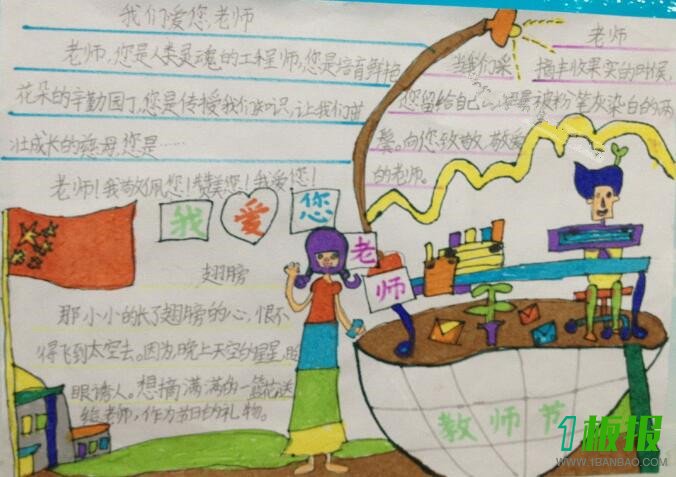 我们爱您,老师
老师,您是人类灵魂的工程师,您是培育鲜艳
花朵的辛勤园丁,您是传授我们知识,让我们茁
壮成长的慈母,您是……
老师!我敬佩您!赞美您!我爱您!
老师
当我们采摘丰收果实的时候,
您留给自己的是被粉笔灰染白的两
鬓。向您致敬,敬爱
的老师。
我爱您
老师
翅膀
那小小的长了翅膀的心,恨不
得飞到太空去。因为,晚上天空的星星,眨
眼诱人。想摘满满的一篮花送
给老师,作为节日的礼物。
教师节
1板报
WWW.1BANBAO.COM